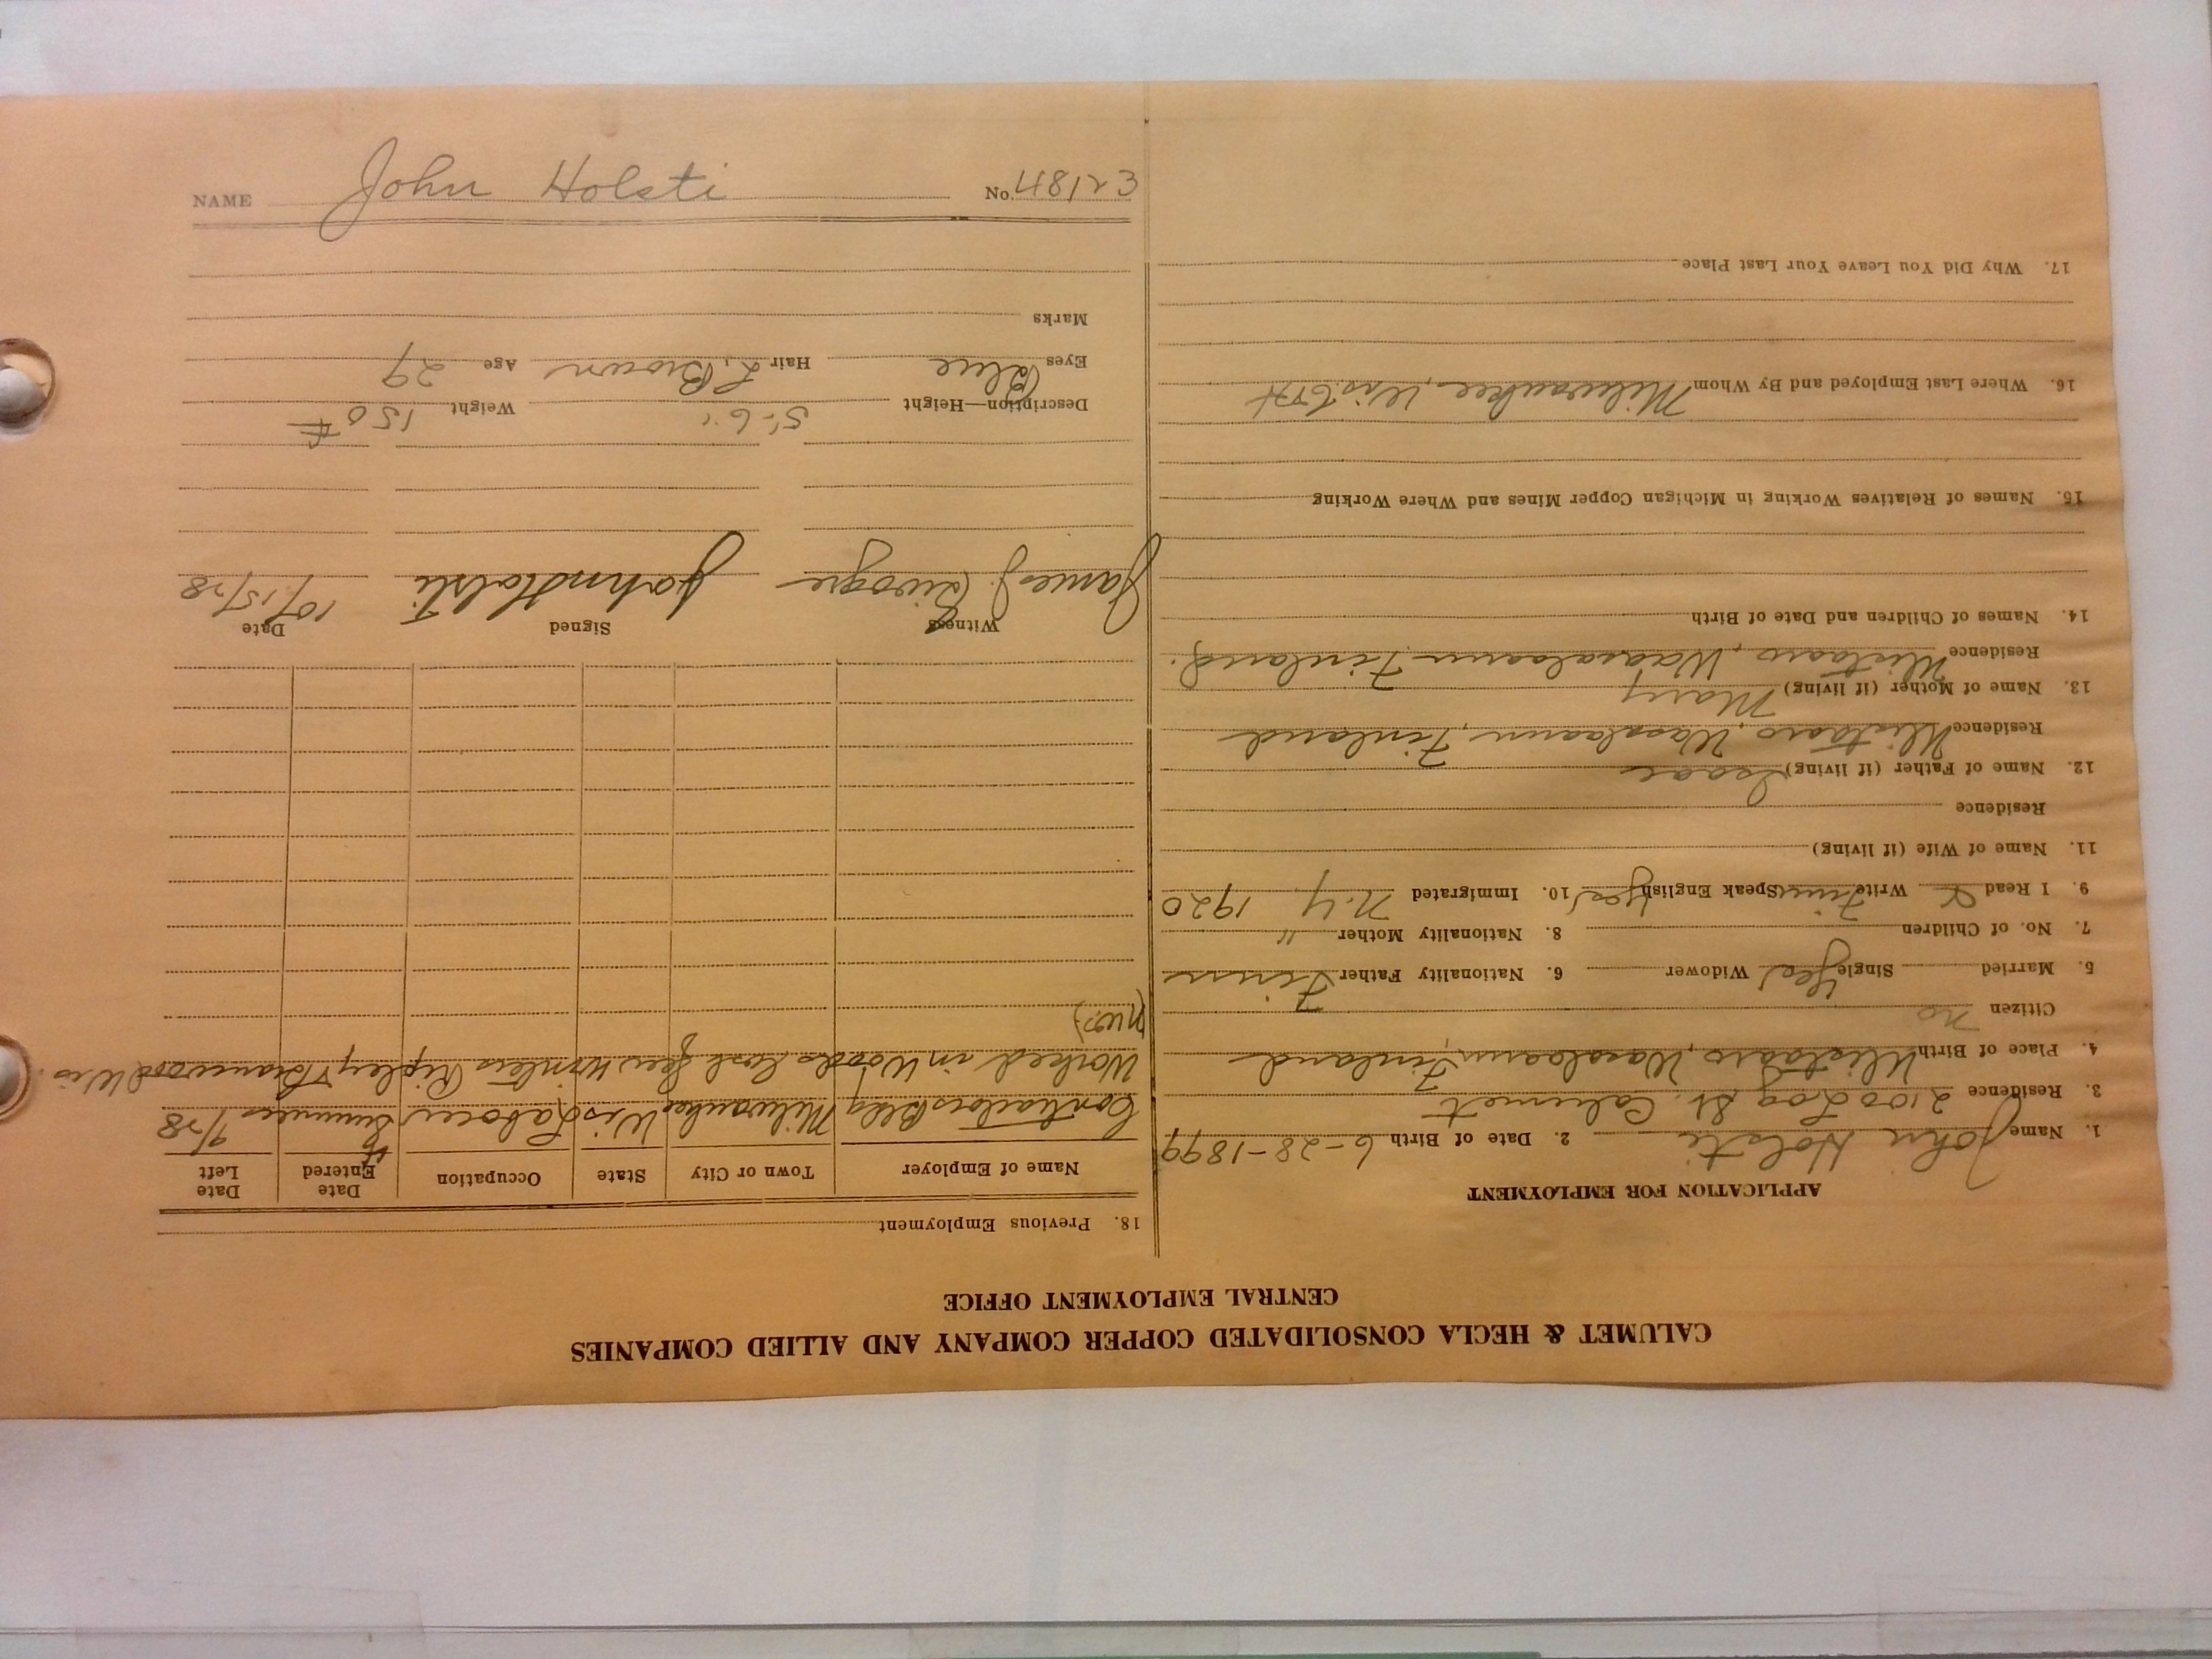 CALUMET & HECLA CONSOLIDATED COPPER COMPANY AND ALLIED COMPANIES
CENTRAL EMPLOYMENT OFFICE
APPLICATION FOR EMPLOYMENT
1. Name John Holsti 2. Date of Birth 6-28-1899
3. Residence 2100 Log St. Calumet
4. Place of Birth Ylistaro, Waasalaani, Finland
Citizen no
5. Married Single Yes Widower 6. Nationality Father Finn
7. No. of Children 8. Nationality Mother "
9. I Read & Write Finn Speak English Yes 10. Immigrated N.Y. 1920
11. Name of Wife (if living)
Residence
12. Name of Father (if living) Isaac
Residence Ylistaro, Finland
13. Name of Mother (if living) Mary
Residence Ylistaro, Finland.
14. Names of Children and Date of Birth
15. Names of Relatives Working in Michigan Copper Mines and Where Working
16. Where Last Employed and By Whom Milwaukee, Wis.
17. Why Did You Leave Your Last Place
18. Previous Employment
Name of Employer Town or City State Occupation Date Entered Date Left
Contractors Bldg Milwaukee Wis Laborer Summer 9/28
Worked in Woods last few winters Ripley & Wis.
Witness Signed Date
James J. John Holsti 10/15/28
Description—Height 5'-6" Weight 150 #
Eyes Blue Hair L. Brown Age 29
Marks
NAME John Holsti No.